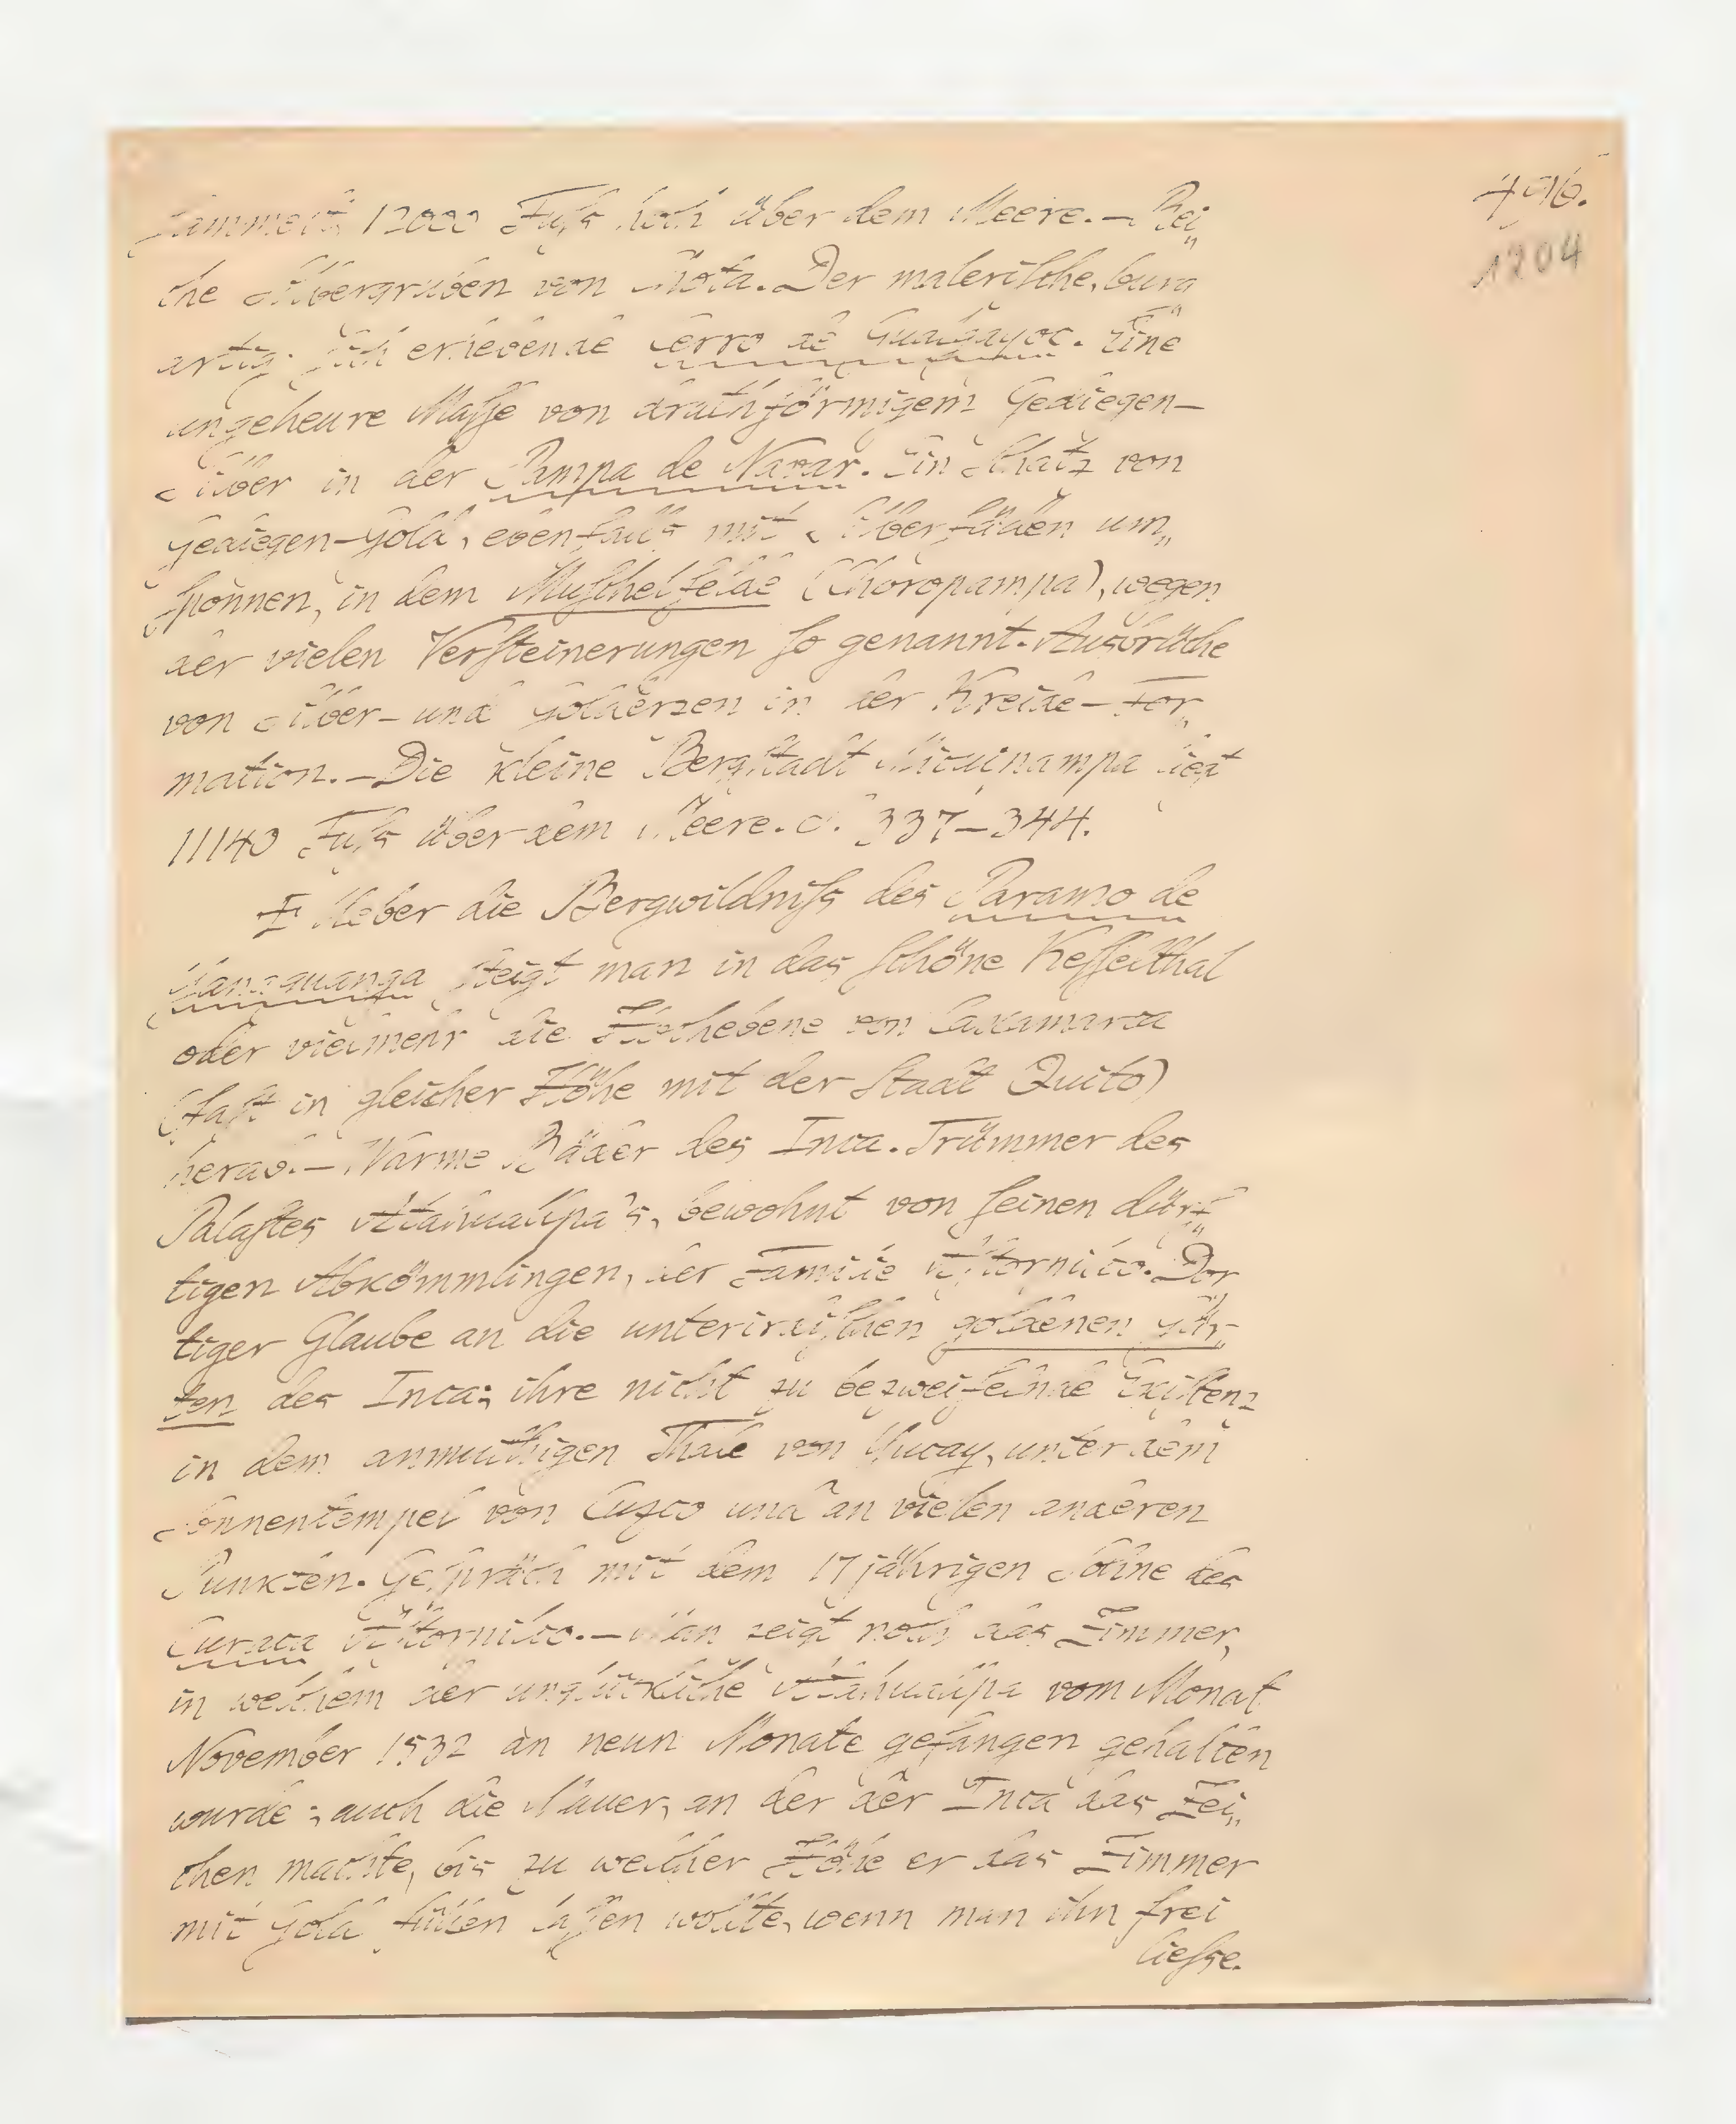 496.
1204
12000 Fuſs hoch über dem Meere. — Rei„
che Silbergruben von Chota. Der maleriſche, burg„
artig ſich erhebende Cerro de Gualgayoc. Eine
ungeheure Maſſe von drathförmigem Gediegen-
Silber in der Pampa de Navar. Ein Schatz von
Gediegen-Gold, ebenfalls mit Silberfäden um„
ſponnen, in dem Muſchelfelde (Choropampa), wegen
der vielen Verſteinerungen ſo genannt. Ausbrüche
von Silber- und Golderzen in der Kreide-For„
mation. — Die kleine Bergſtadt Micuipampa liegt
11140 Fuſs über dem Meere. S. 337–344.
Ueber die Bergwildniſs des Paramo de
Yanaguanga ſteigt man in das ſchöne Keſſelthal
oder vielmehr die Hochebene von Caxamarca
(faſt in gleicher Höhe mit der Stadt Quito)
herab. — Warme Bäder des Inca. Trümmer des
Palaſtes Atahuallpa's, bewohnt von ſeinen dürf„
tigen Abkömmlingen, der Familie Aſtorpilco. Dor„
tiger Glaube an die unterirdiſchen goldenen Gär„
ten des Inca; ihre nicht zu bezweifelnde Exiſtenz
in dem anmuthigen Thale von Yucay, unter dem
Sonnentempel von Cuzco und an vielen anderen
Punkten. Geſpräch mit dem 17jährigen Sohne des
Curaca Aſtorpilco. — Man zeigt noch das Zimmer,
in welchem der unglückliche Atahuallpa vom Monat
November 1532 an neun Monate gefangen gehalten
wurde; auch die Mauer, an der der Inca das Zei„
chen machte, bis zu welcher Höhe er das Zimmer
mit Gold füllen laſſen wollte, wenn man ihn frei
lieſse.